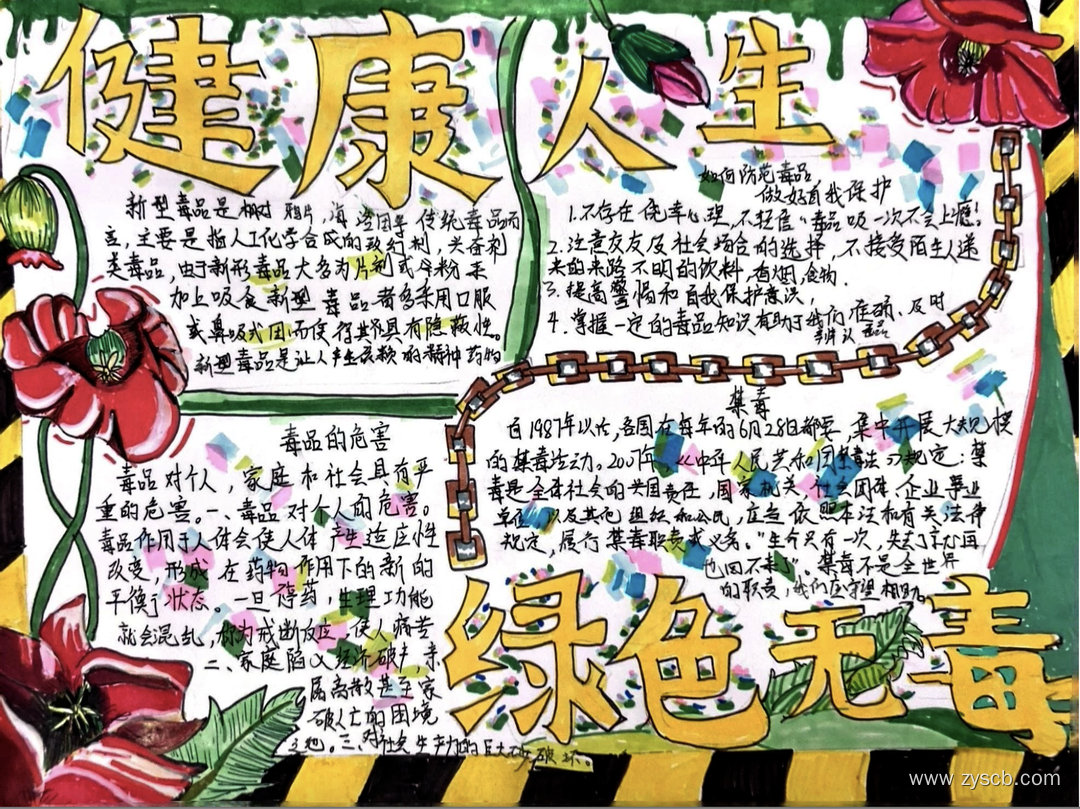 健康人生
新型毒品是相对鸦片,海洛因等传统毒品而
言,主要是指人工化学合成的致幻剂,兴奋剂
类毒品,由于新形毒品大多为片剂或
加上吸食新型毒品者多采用口服
或鼻吸式因而使得其具有隐蔽性。
新型毒品是让人产生的精神药物
如何防范毒品
做好自我保护
1.不存在侥幸心理,不轻信“毒品吸一次不会上瘾!
2.注意交友及社会场合的选择,不接受陌生人递
来的来路不明的饮料,香烟,食物.
3.提高警惕和自我保护意识,
4.掌握一定的毒品知识有助于我们准确、及时
辨认毒品
禁毒
自1987年以后,各国在每年的6月28日都要,集中开展大规模
的禁毒活动。2007年,《中华人民共和国禁毒法》规定:禁
毒是全体社会的共同责任,国家机关,社会团体、企业事业
单位,以及其他组织和公民,应当依照本法和有关法律
规定,履行禁毒职责或义务。“生命只有一次,失去了就再
也回不来了”。禁毒不是全世界
的职责,我们应守望相助。
毒品的危害
毒品对个人,家庭和社会具有严
重的危害。一、毒品对个人的危害。
毒品作用于人体会使人体产生适应性
改变,形成在药物作用下的新的
平衡状态。一旦停药,生理功能
就会混乱,称为戒断反应,使人痛苦
二、家庭陷入经济破产,亲
属离散甚至家
破人亡的困境
之地。三、对社会生产力的巨大破坏。
绿色无毒
www.zyscb.com